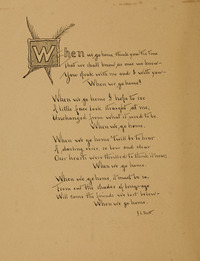 When we go home, think you the time
that we shall know, as once we knew—
You speak with me and I with you—
When we go home?
When we go home I hope to see
A little face look straight at me,
Unchanged from what it used to be,
When we go home.
When we go home 'twill be to hear
A darling voice so low and clear
Our hearts were thrilled to think it near,
When we go home.
When we go home, it must be so,
From out the shades of long-ago
Will come the friends we lost below—
When we go home.